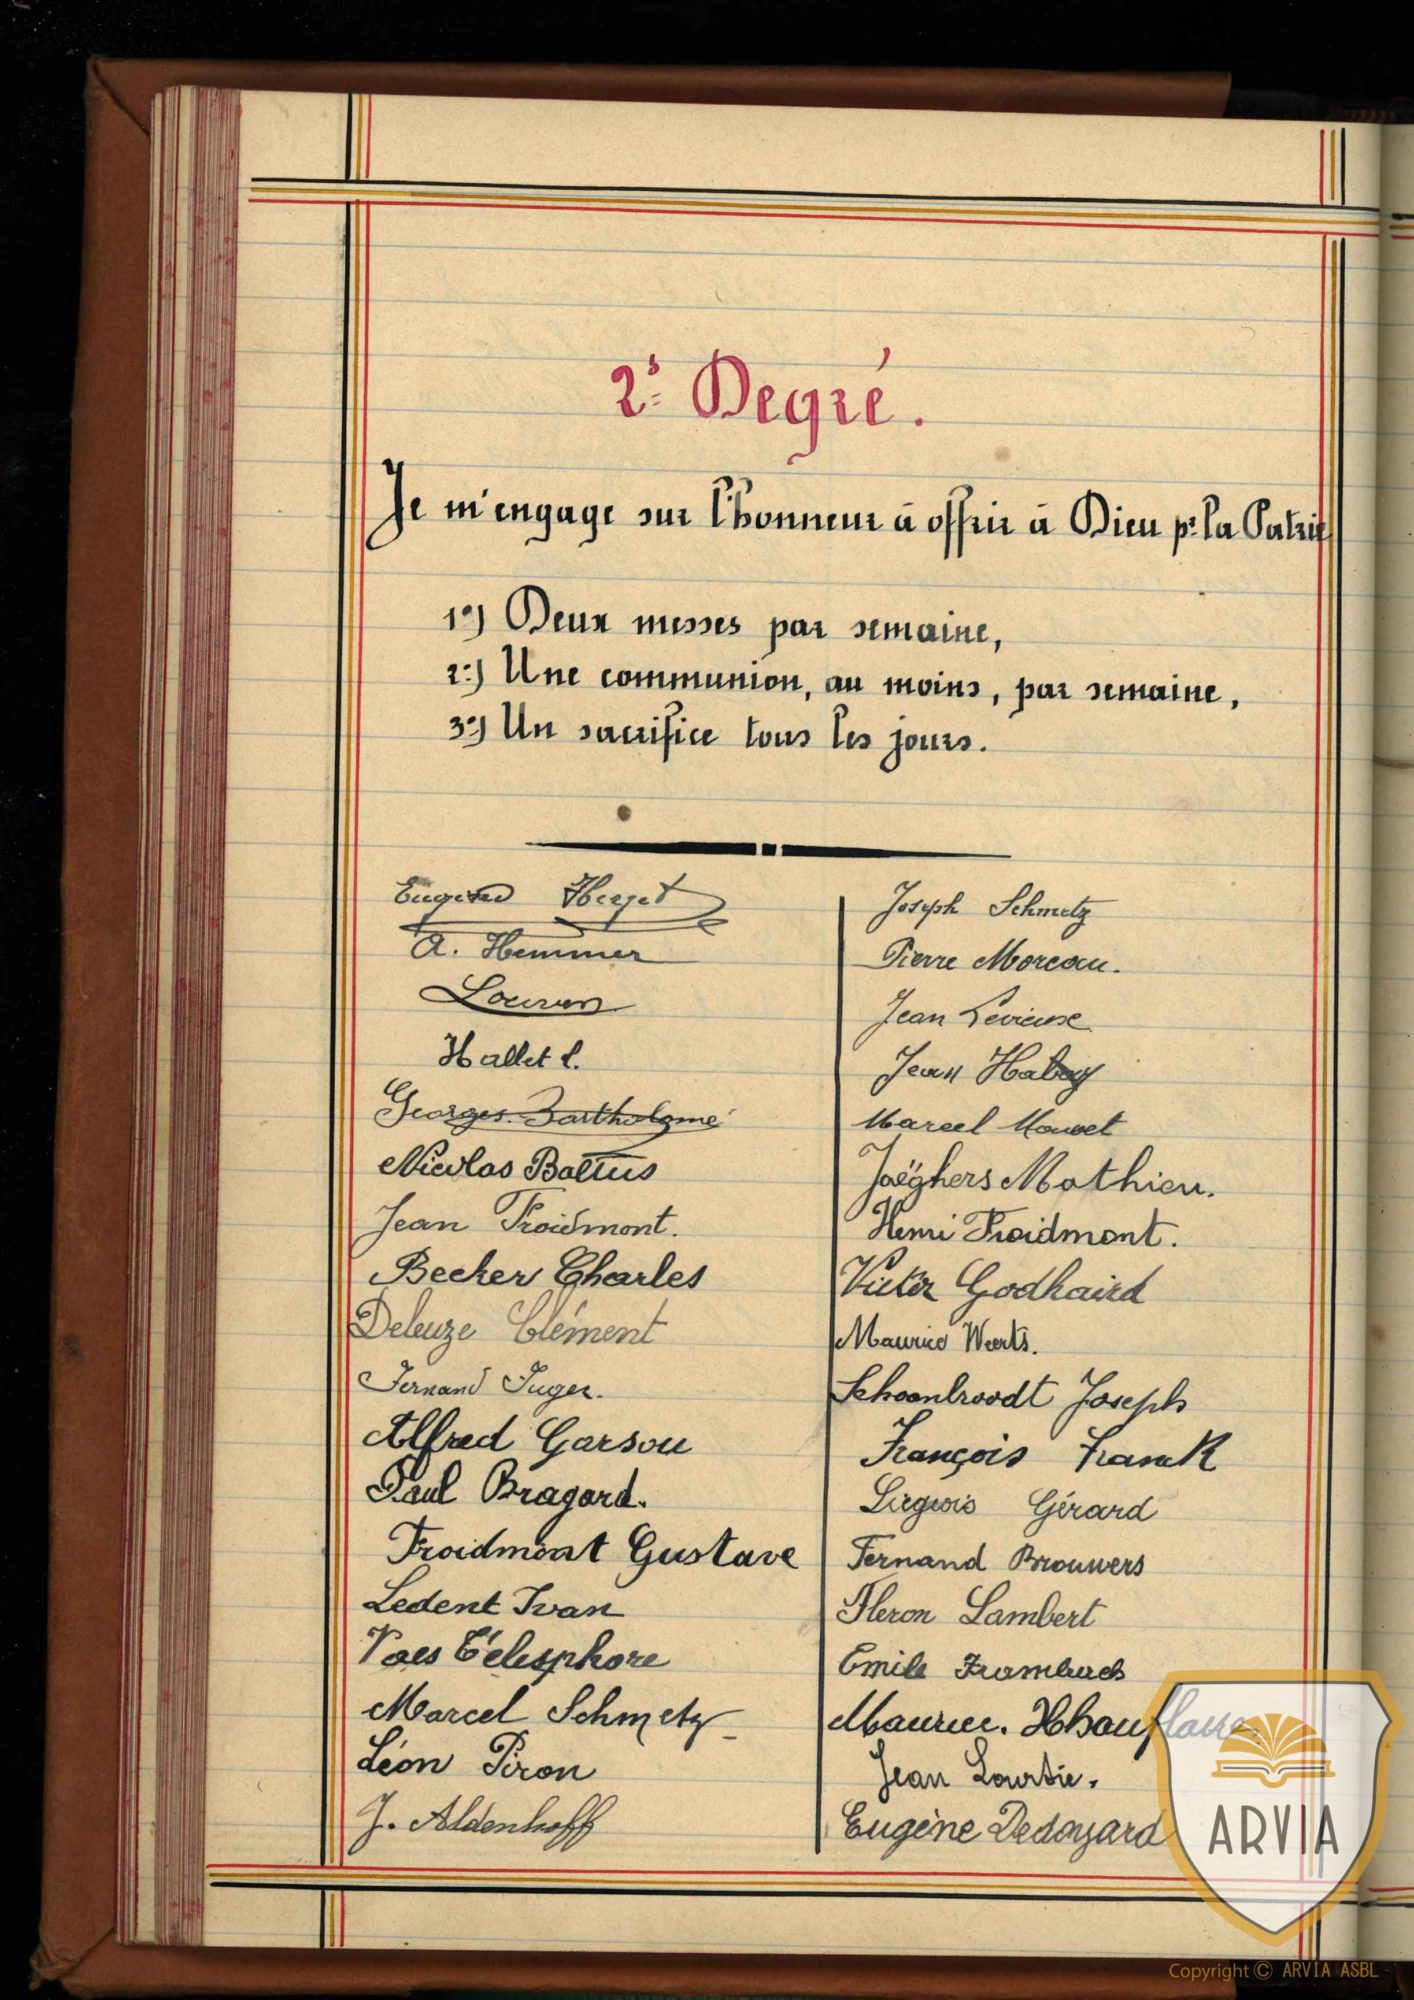 2° Degré.
Je m'engage sur l'honneur à offrir à Dieu pr la Patrie
1°) Deux messes par semaine,
2°) Une communion, au moins, par semaine,
3°) Un sacrifice tous les jours.
Eugène Herget
A. Hemmer
Hallet l.
Georges Bartholomé
Nicolas Baltus
Jean Froidmont.
Becker Charles
Deleuze Clément
Fernand Juger.
Alfred Garsou
Paul Bragard.
Froidmont Gustave
Ledent Ivan
Vaes Télesphore
Marcel Schmetz
Léon Piron
J. Aldenhoff
Joseph Schmetz
Pierre Moreau.
Jean Levieuse
Jean Habay
Marcel Mouvet
Jaëghers Mathieu.
Henri Froidmont.
Victor Godhaird
Maurice Weerts.
Schoonbroodt Joseph
François Franck
Liégeois Gérard
Fernand Brouwers
Fleron Lambert
Emile Frambach
Maurice. Hhauflaire
Jean Lourtie.
Eugène Dedoyard
ARVIA
Copyright © ARVIA ASBL